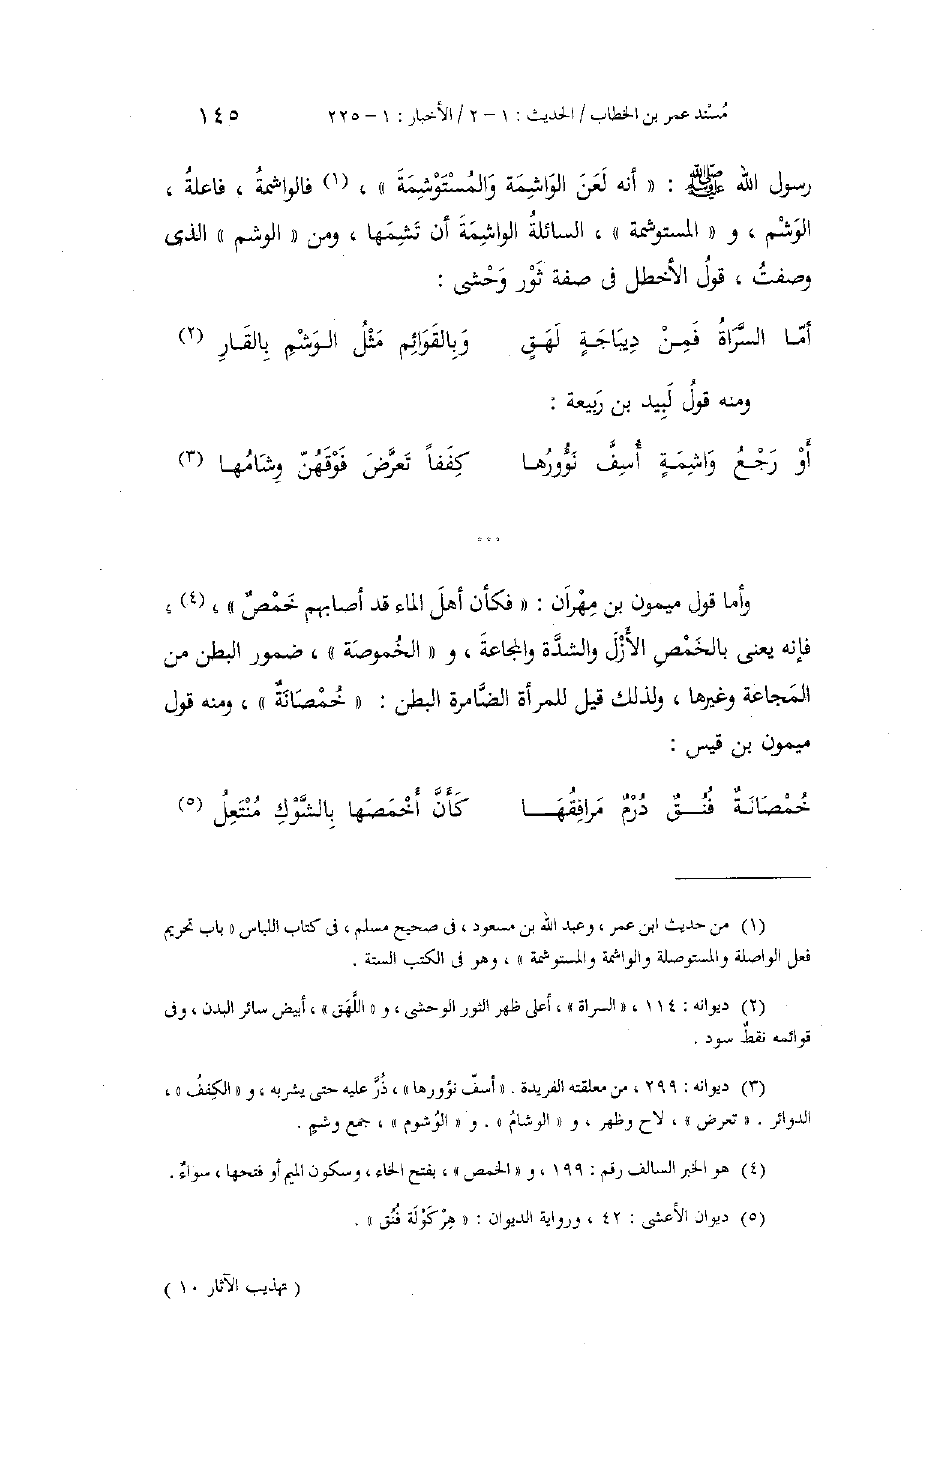 مُسْند عمر بن الخطاب / الحديث : ١ – ٢ / الأخبار : ١ – ٢٢٥ ١٤٥
رسول الله ﷺ : « أنه لَعَنَ الوَاشِمَة وَالمُسْتَوْشِمَةَ » ، (١) فالواشمةُ ، فاعلةُ ،
الوَشْم ، و « المستوشمة » ، السائلةُ الواشِمَةَ أن تَشِمَها ، ومن « الوشم » الذى
وصفتُ ، قولُ الأخطل فى صفة ثَوْر وَحْشى :
أمّا السَّرَاةُ فَمِنْ دِيبَاجَةٍ لَهَقٍ وَبِالقَوَائِم مَثْلُ الوَشْمِ بِالقَارِ (٢)
ومنه قولُ لَبِيد بن رَبِيعة :
أَوْ رَجْعُ وَاشِمَةٍ أُسِفَّ نَؤُورُها كِفَفاً تَعرَّضَ فَوْقَهُنّ وِشَامُها (٣)
* * *
وأما قول ميمون بن مِهْرَان : « فكأن أهلَ الماء قد أصابهم خَمْصٌ » ، (٤) ،
فإنه يعنى بالخَمْصِ الأَزْلَ والشدَّة والمجاعةَ ، و « الخُموصَة » ، ضمور البطن من
المَجاعة وغيرها ، ولذلك قيل للمرأة الضَّامرة البطن : « خُمْصَانَةٌ » ، ومنه قول
ميمون بن قيس :
خُمْصَانَةٌ فُنُقٌ دُرْمٌ مَرَافِقُهَا كَأَنَّ أَخْمَصَها بِالشَّوْكِ مُنْتَعِلُ (٥)
(١) من حديث ابن عمر ، وعبد الله بن مسعود ، فى صحيح مسلم ، فى كتاب اللباس « باب تحريم
فعل الواصلة والمستوصلة والواشمة والمستوشمة » ، وهو فى الكتب الستة .
(٢) ديوانه : ١١٤ ، « السراة » ، أعلى ظهر الثور الوحشى ، و « اللَّهَق » ، أبيض سائر البدن ، وفى
قوائمه نقطٌ سود .
(٣) ديوانه : ٢٩٩ ، من معلقته الفريدة . « أسفّ نؤورها » ، ذُرَّ عليه حتى يشربه ، و « الكِفَفُ » ،
الدوائر . « تعرض » ، لاح وظهر ، و « الوشامُ » . و « الوُشوم » ، جمع وشمٍ .
(٤) هو الخبر السالف رقم : ١٩٩ ، و « الخمص » ، بفتح الخاء ، وسكون الميم أو فتحها ، سواءٌ .
(٥) ديوان الأعشى : ٤٢ ، ورواية الديوان : « هِرْكَوْلَة فُنُق » .
( تهذيب الآثار ١٠ )